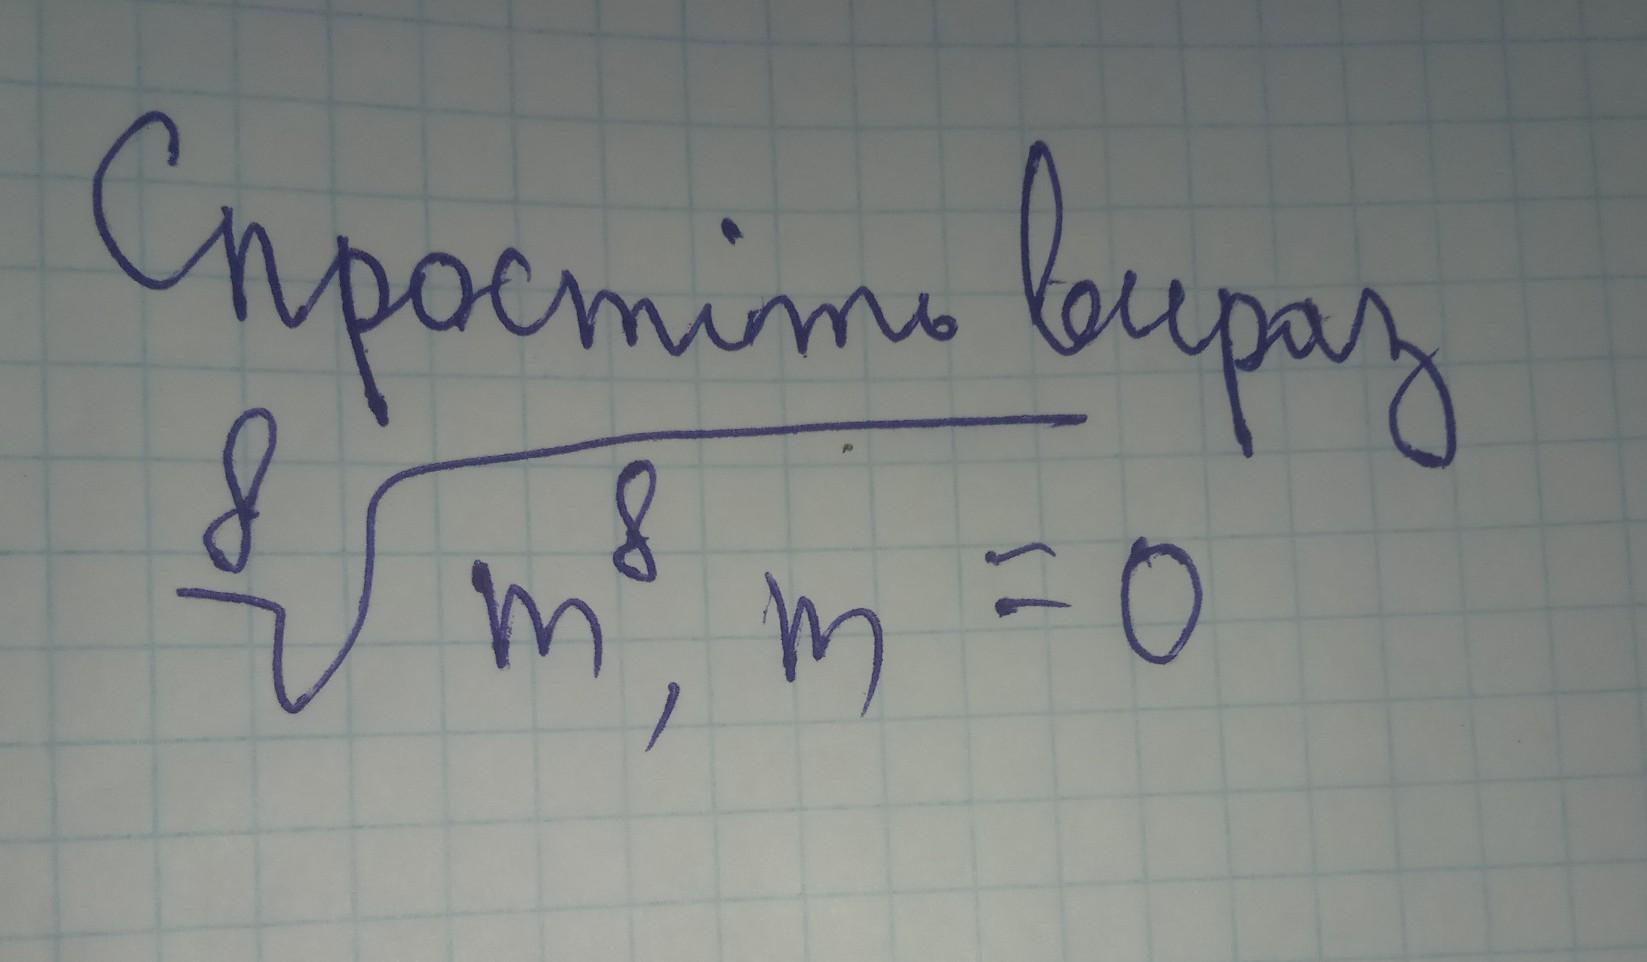 Спростіть вираз
⁸√m⁸, m = 0